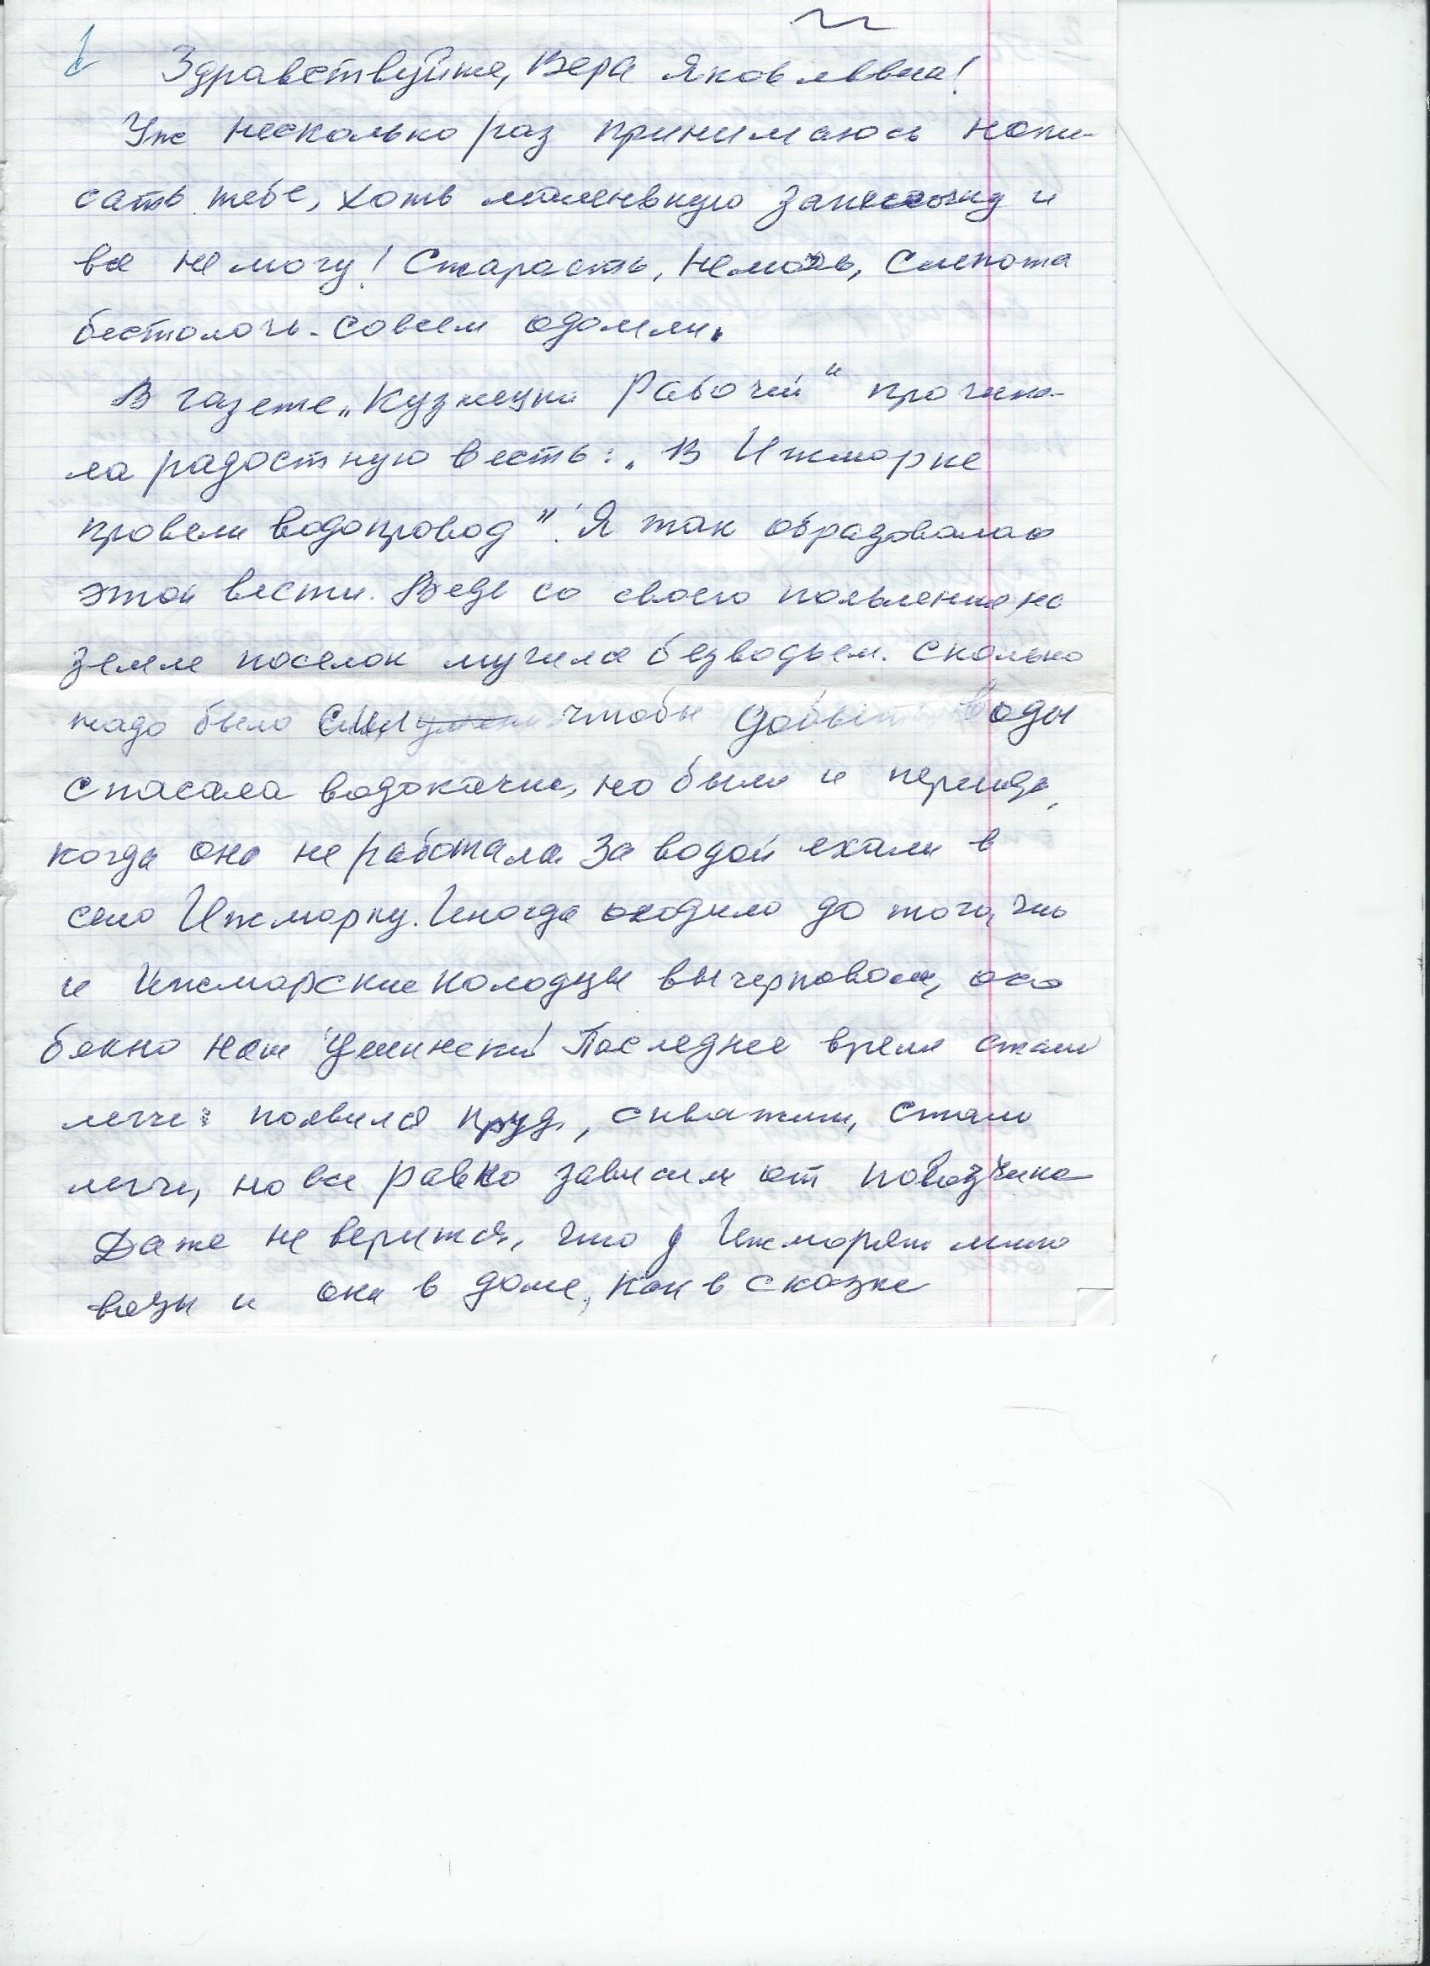 1
Здравствуйте, Вера Яковлевна!
Уж несколько раз принимаюсь напи-
сать тебе, хоть маленькую записочку и
все не могу! Старость, немочь, слепота
бестолочь - совсем одолели.
В газете „Кузнецки Рабочий" прочита-
ла радостную весть: „В Ижморке
провели водопровод"! Я так обрадовалась
этой вести. Ведь со своего появления на
земле поселок мучился безводьем. Сколько
надо было сил чтобы добыть воды
спасала водокачка, но были и периоды,
когда она не работала. За водой ехали в
село Ижморку. Иногда доходило до того, что
и Ижморские колодцы вычерповали,
наш Ушинский! Последнее время стало
легче: появился пруд, скважины, стало
легче, но все равно зависели от
Даже не верится, что у Ижморян много
воды и она в доме, как в сказке